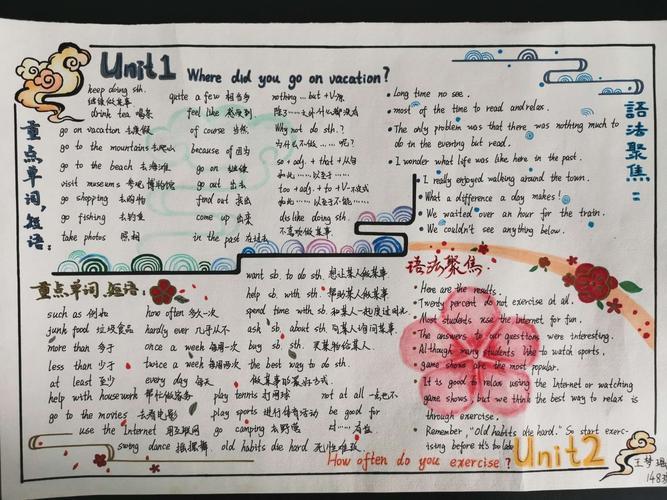 Unit1 Where did you go on vacation?
重点单词,短语:
keep doing sth.
继续做某事
drink tea 喝茶
go on vacation 去度假
go to the mountains 去爬山
go to the beach 去海滩
visit museums 参观博物馆
go shopping 去购物
go fishing 去钓鱼
take photos 照相
quite a few 相当多
feel like 感受到
of course 当然
because of 因为
go on 继续
go out 出去
find out 查出
come up 出来
in the past 在过去
nothing ... but + V-原
除了……之外什么都没有
Why not do sth.?
为什么不做……呢?
so + adj. + that + 从句
如此……以至于……
too + adj. + to + V-不定式
如此……以至于不能……
dislike doing sth.
不喜欢做某事
語法聚焦:
Long time no see.
most of the time to read and relax.
The only problem was that there was nothing much to
do in the evening but read.
I wonder what life was like here in the past.
I really enjoyed walking around the town.
What a difference a day makes!
We waited over an hour for the train.
We couldn't see anything below.
重点单词、短语:
such as 例如
junk food 垃圾食品
more than 多于
less than 少于
at least 至少
help with housework 帮忙做家务
go to the movies 去看电影
use the Internet 用互联网
how often 多久一次
hardly ever 几乎从不
once a week 每周一次
twice a week 每周两次
every day 每天
play tennis 打网球
play sports 进行体育活动
go camping 去野营
swing dance 摇摆舞
old habits die hard 积习难改
want sb. to do sth. 想让某人做某事
help sb. with sth. 帮助某人做某事
spend time with sb. 和某人一起度过时光
ask sb. about sth 向某人询问某事
buy sb. sth. 买某物给某人
the best way to do sth.
做某事的最好方式
not at all 一点也不
be good for
对……有益
语法聚焦
Here are the results.
Twenty percent do not exercise at all.
Most students use the Internet for fun.
The answers to our questions were interesting.
Although many students like to watch sports,
game shows are the most popular.
It is good to relax using the Internet or watching
game shows but we think the best way to relax is
through exercise.
Remember, "Old habits die hard." So start exerc-
ising before it's too late
How often do you exercise? Unit2
王梦